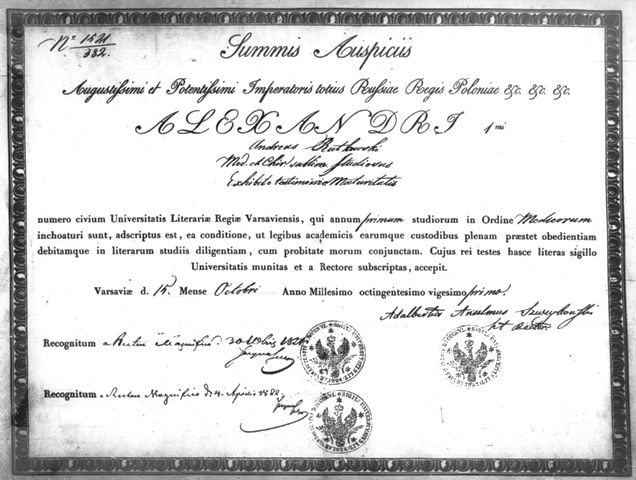 Nº 1521
382.
Summis Auspiciis
Augustissimi et Potentissimi Imperatoris totius Russiae Regis Poloniae &c. &c. &c.
ALEXANDRI 1mi
Andreas Rutkowski
Med. et Chir. Studiosus
Exhibito testimonio Maturitatis
numero civium Universitatis Literariæ Regiæ Varsaviensis, qui annum primum studiorum in Ordine Medicorum
inchoaturi sunt, adscriptus est, ea conditione, ut legibus academicis earumque custodibus plenam præstet obedientiam
debitamque in literarum studiis diligentiam, cum probitate morum conjunctam. Cujus rei testes hasce literas sigillo
Universitatis munitas et a Rectore subscriptas, accepit.
Varsaviæ d. 15 Mense Octobri Anno Millesimo octingentesimo vigesimo primo.
Adalbertus Anselmus Szweykowski
Recognitum a Rectore Magnifico
Recognitum a Rectore Magnifico d. 4. Aprilis